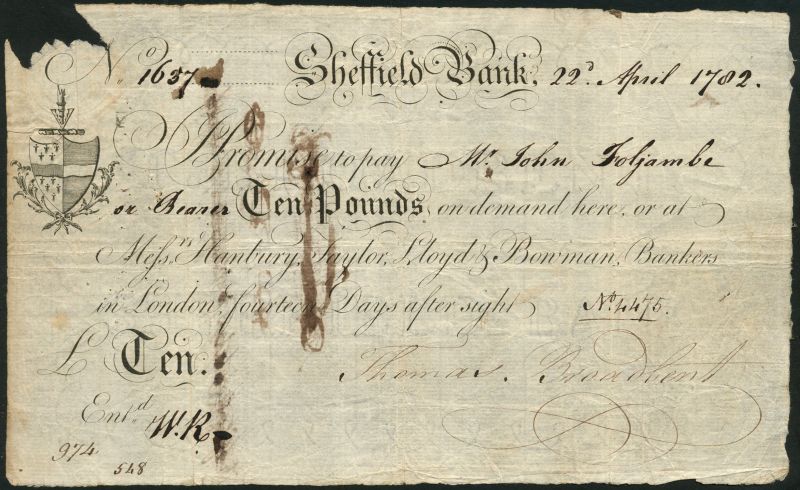 No. 1637 Sheffield Bank, 22d. April 1782.
I Promise to pay Mr. John Foljambe
or Bearer Ten Pounds on demand here, or at
Messrs. Hanbury, Taylor, Lloyd & Bowman, Bankers
in London, fourteen Days after sight No. 4475.
£ Ten. Thomas. Broadbent
Entd. W.R
974
548